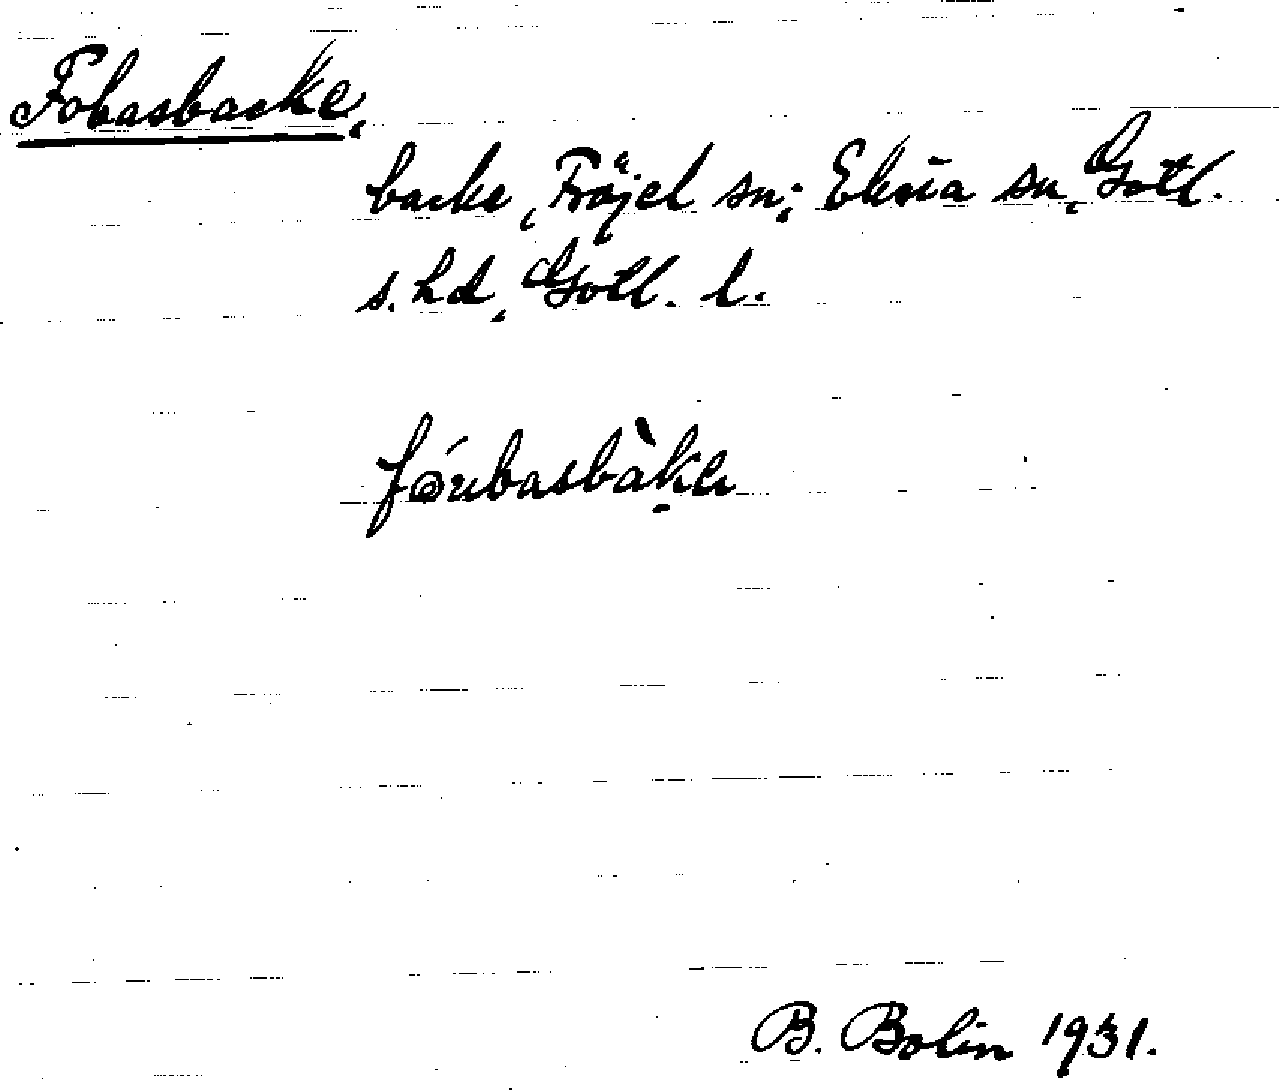 Fobasbacke,
backe, Fröjel sn; Eksta sn, Gotl.
s. hd, Gotl. l.
B. Bolin 1931.